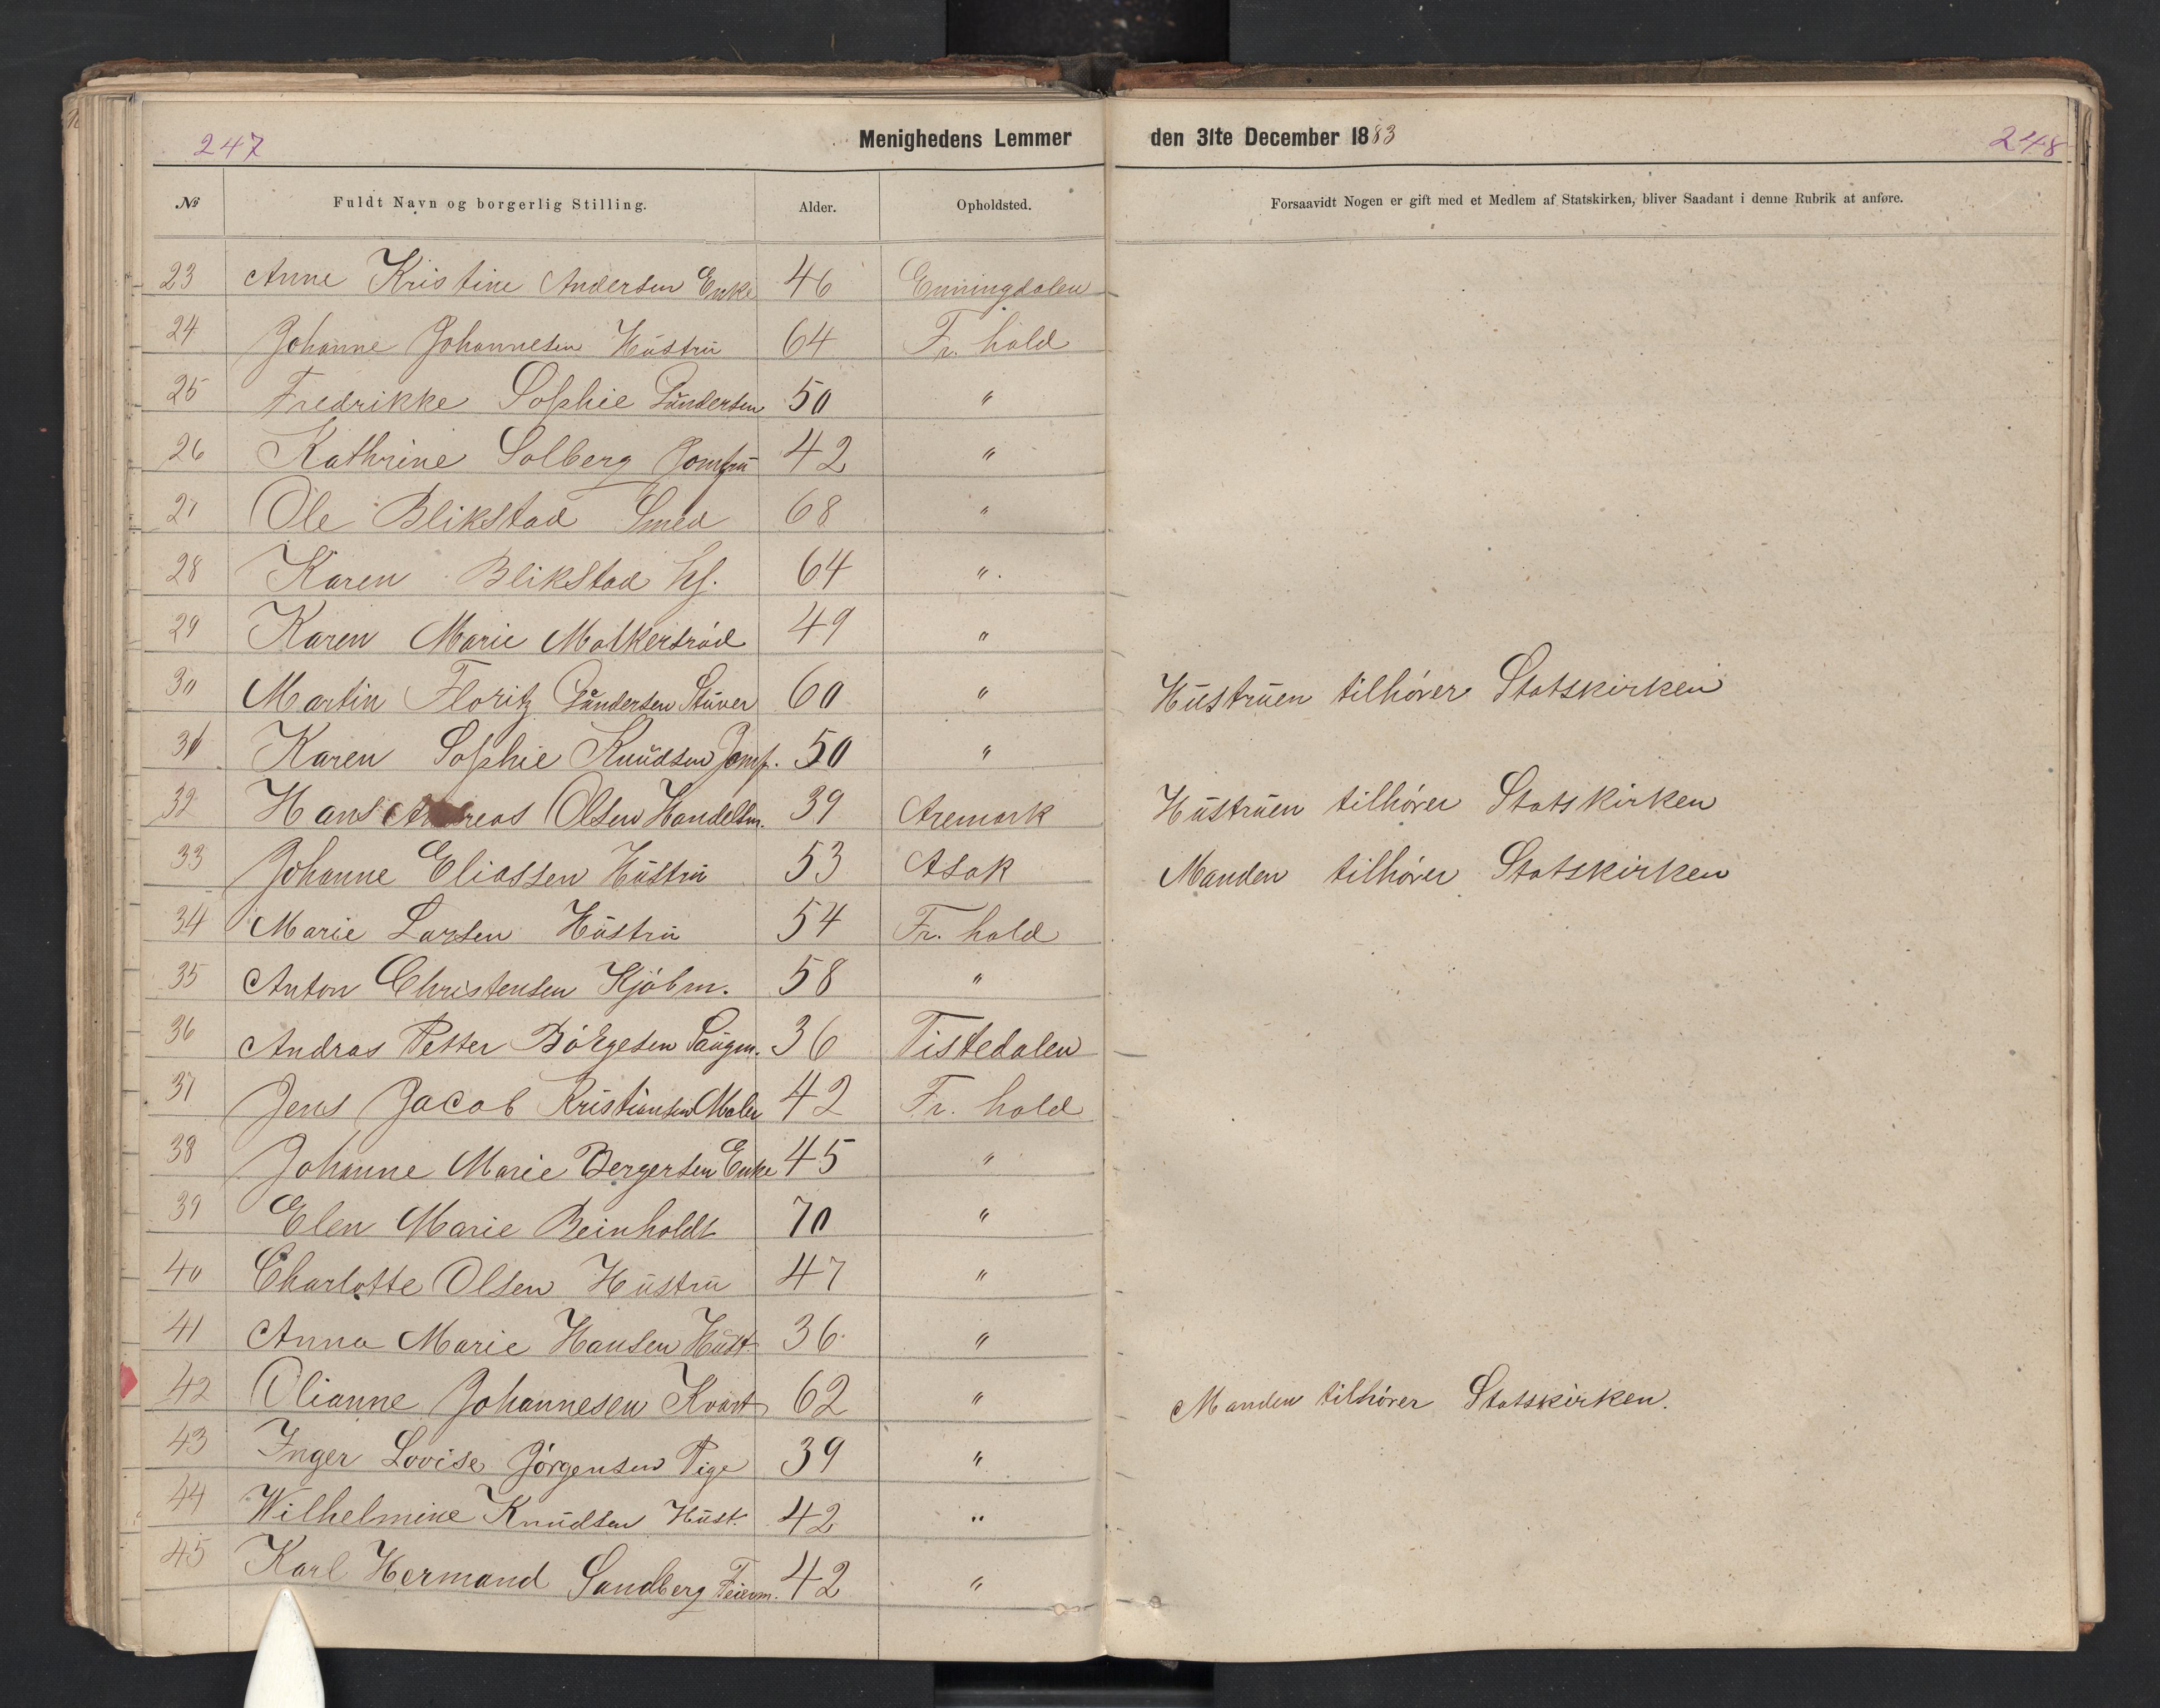 247
Menighedens Lemmer
den 31te December 1883
248
No
Fuldt Navn og borgerlig Stilling.
Alder.
Opholdsted.
Forsaavidt Nogen er gift med et Medlem af Statskirken, bliver Saadant i denne Rubrik at anføre.
23 Anne Kristine Andersen Enke 46 Enningdalen
24 Johanne Johannesen Hustru 64 Fr. hald
25 Fredrikke Sophie Gundersen 50 "
26 Kathrine Solberg Jomfru 42 "
27 Ole Blikstad Smed 68 "
28 Karen Blikstad 64 "
29 Karen Marie 49 "
30 Martin Floritz Gundersen Stuver 60 " Hustruen tilhører Statskirken
31 Karen Sophie Knudsen Jomf. 50 "
32 Hans Andreas Olsen Handelsm. 39 Aremark Hustruen tilhører Statskirken
33 Johanne Eliassen Hustru 53 Asak Manden tilhører Statskirken
34 Marie Larsen Hustru 54 Fr. hald
35 Anton Christensen Kjöbm. 58 "
36 Andras Petter Börgesen Saugm. 36 Tistedalen
37 Jens Jacob Kristiansen Maler 42 Fr. hald
38 Johanne Marie Bergersen Enke 45 "
39 Elen Marie Beinholdt 70 "
40 Charlotte Olsen Hustru 47 "
41 Anna Marie Hansen Hust. 36 "
42 Olianne Johannesen 62 " Manden tilhörer Statskirken.
43 Inger Lovise Jörgensen Pige 39 "
44 Wilhelmine Knudsen Hust. 42 "
45 Karl Hermand Sandberg Feierm. 42 "